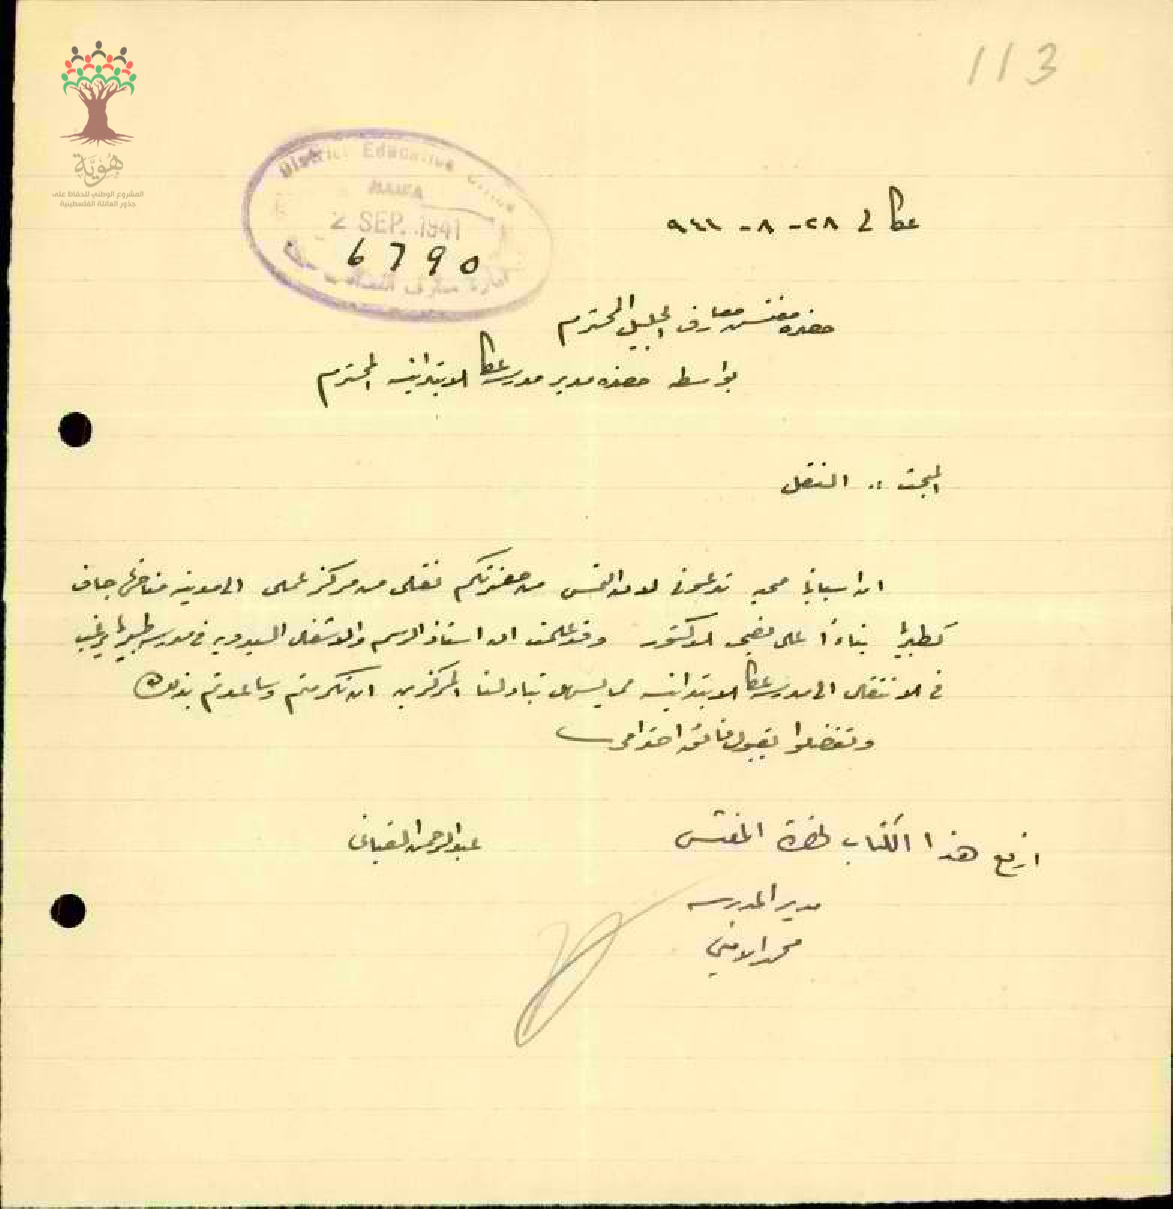 113
هُوِيَّة
المشروع الوطني للحفاظ على
جذور العائلة الفلسطينية
District Education Office
HAIFA
2 SEP. 1941
6790
عكا في ٢٨ - ٨ - ٩٤١
حضرة مفتش معارف الجليل المحترم
بواسطة حضرة مدير مدرسة عكا الابتدائية المحترم
المبحث :. النقل
ان اسبابا صحيه تدعوني لان التمس من حضرتكم نقلي من مركز عملي الى مدينة مناخها جاف
كطبريا بناءً على نصيحة الدكتور وقد علمت ان استاذ الرسم والاشغال اليدوية في مدرسة طبريا يرغب
في الانتقال الى مدرسة عكا الابتدائية مما يسهل تبادلنا المركزين ان تكرمتم وساعدتم بذلك
وتفضلوا بقبول فائق احترامي
عبد الرحمن
ارفع هذا الكتاب لحضرة المفتش
مدير المدرسة
محمد